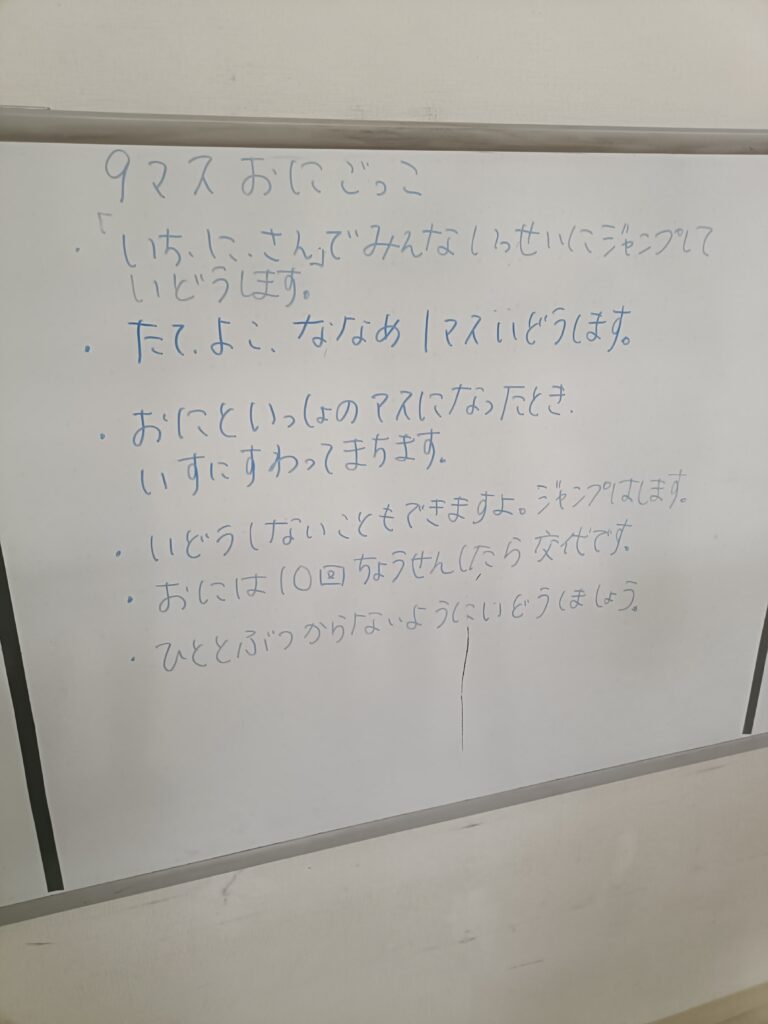 9マスおにごっこ
・「いち、に、さん」でみんないっせいにジャンプして
いどうします。
・たて、よこ、ななめ1マスいどうします。
・おにといっしょのマスになったとき、
いすにすわってまちます。
・いどうしないこともできますよ。ジャンプはします。
・おには10回ちょうせんしたら交代です。
・ひととぶつからないようにいどうしましょう。